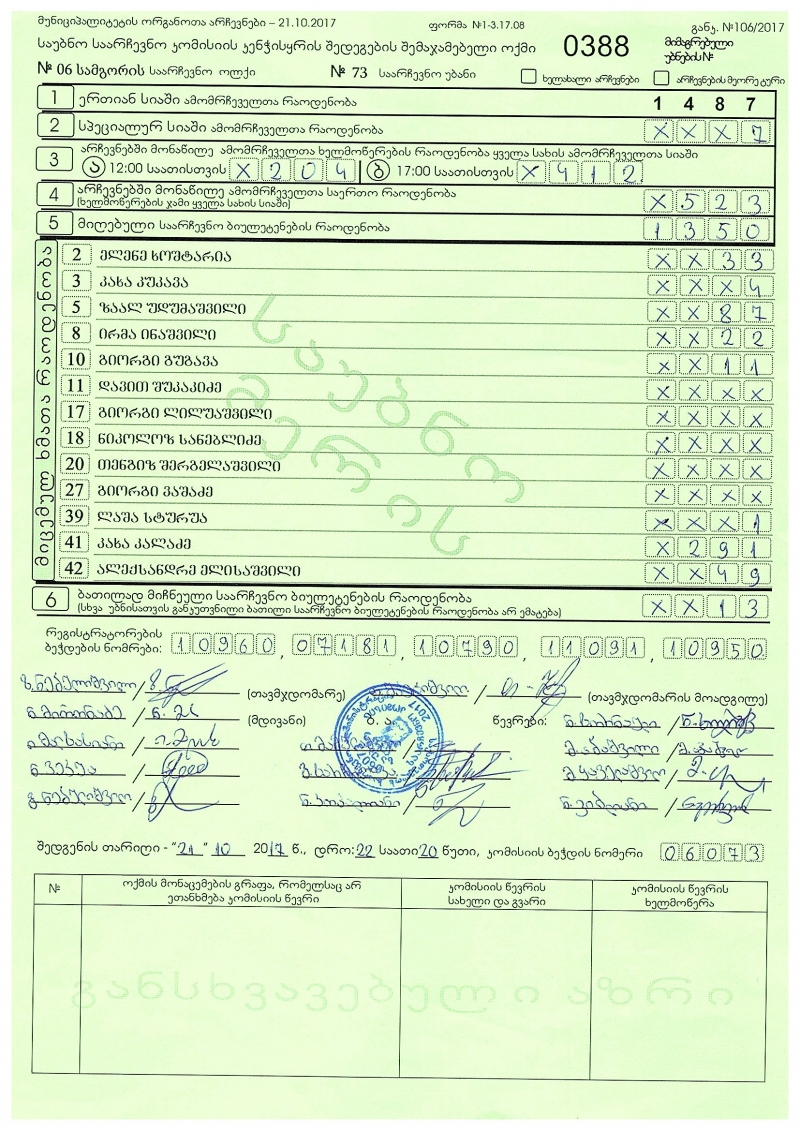 მუნიციპალიტეტის ორგანოთა არჩევნები – 21.10.2017 ფორმა №1-3.17.08 განკ. №106/2017
საუბნო საარჩევნო კომისიის კენჭისყრის შედეგების შემაჯამებელი ოქმი 0388 მიმაგრებული უბნების №
№ 06 სამგორის საარჩევნო ოლქი № 73 საარჩევნო უბანი ხელახალი არჩევნები არჩევნების მეორე ტური
1 ერთიან სიაში ამომრჩეველთა რაოდენობა 1 4 8 7
2 სპეციალურ სიაში ამომრჩეველთა რაოდენობა X X X 7
3 არჩევნებში მონაწილე ამომრჩეველთა ხელმოწერების რაოდენობა ყველა სახის ამომრჩეველთა სიაში
ა 12:00 საათისთვის X 2 0 4 ბ 17:00 საათისთვის X 4 1 2
4 არჩევნებში მონაწილე ამომრჩეველთა საერთო რაოდენობა X 5 2 3
(ხელმოწერების ჯამი ყველა სახის სიაში)
5 მიღებული საარჩევნო ბიულეტენების რაოდენობა 1 3 5 0
მიცემულ ხმათა რაოდენობა
2 ელენე ხოშტარია X X 3 3
3 კახა კუკავა X X X 4
5 ზაალ უდუმაშვილი X X 8 7
8 ირმა ინაშვილი X X 2 2
10 გიორგი გუგავა X X 1 1
11 დავით შუკაკიძე X X X X
17 გიორგი ლილუაშვილი X X X X
18 ნიკოლოზ სანებლიძე X X X X
20 თენგიზ შერგელაშვილი X X X X
27 გიორგი ვაშაძე X X X X
39 ლაშა სტურუა X X X 1
41 კახა კალაძე X 2 9 1
42 ალექსანდრე ელისაშვილი X X 4 9
საუბნო
მერის
6 ბათილად მიჩნეული საარჩევნო ბიულეტენების რაოდენობა X X 1 3
(სხვა უბნისათვის განკუთვნილი ბათილი საარჩევნო ბიულეტენების რაოდენობა არ ემატება)
რეგისტრატორების
ბეჭდების ნომრები: 10960, 07181, 10790, 11091, 10950
(თავმჯდომარე) (თავმჯდომარის მოადგილე)
(მდივანი) წევრები:
შედგენის თარიღი - "21" 10 2017 წ., დრო: 22 საათი 20 წუთი, კომისიის ბეჭდის ნომერი 06073
№ ოქმის მონაცემების გრაფა, რომელსაც არ ეთანხმება კომისიის წევრი კომისიის წევრის სახელი და გვარი კომისიის წევრის ხელმოწერა
განსხვავებული აზრი